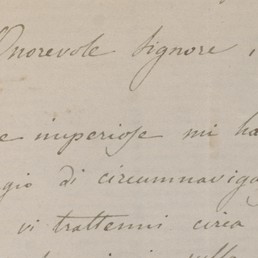 Onorevole Signore,
e imperiose mi ha
gio di circumnaviga
vi trattenni circa